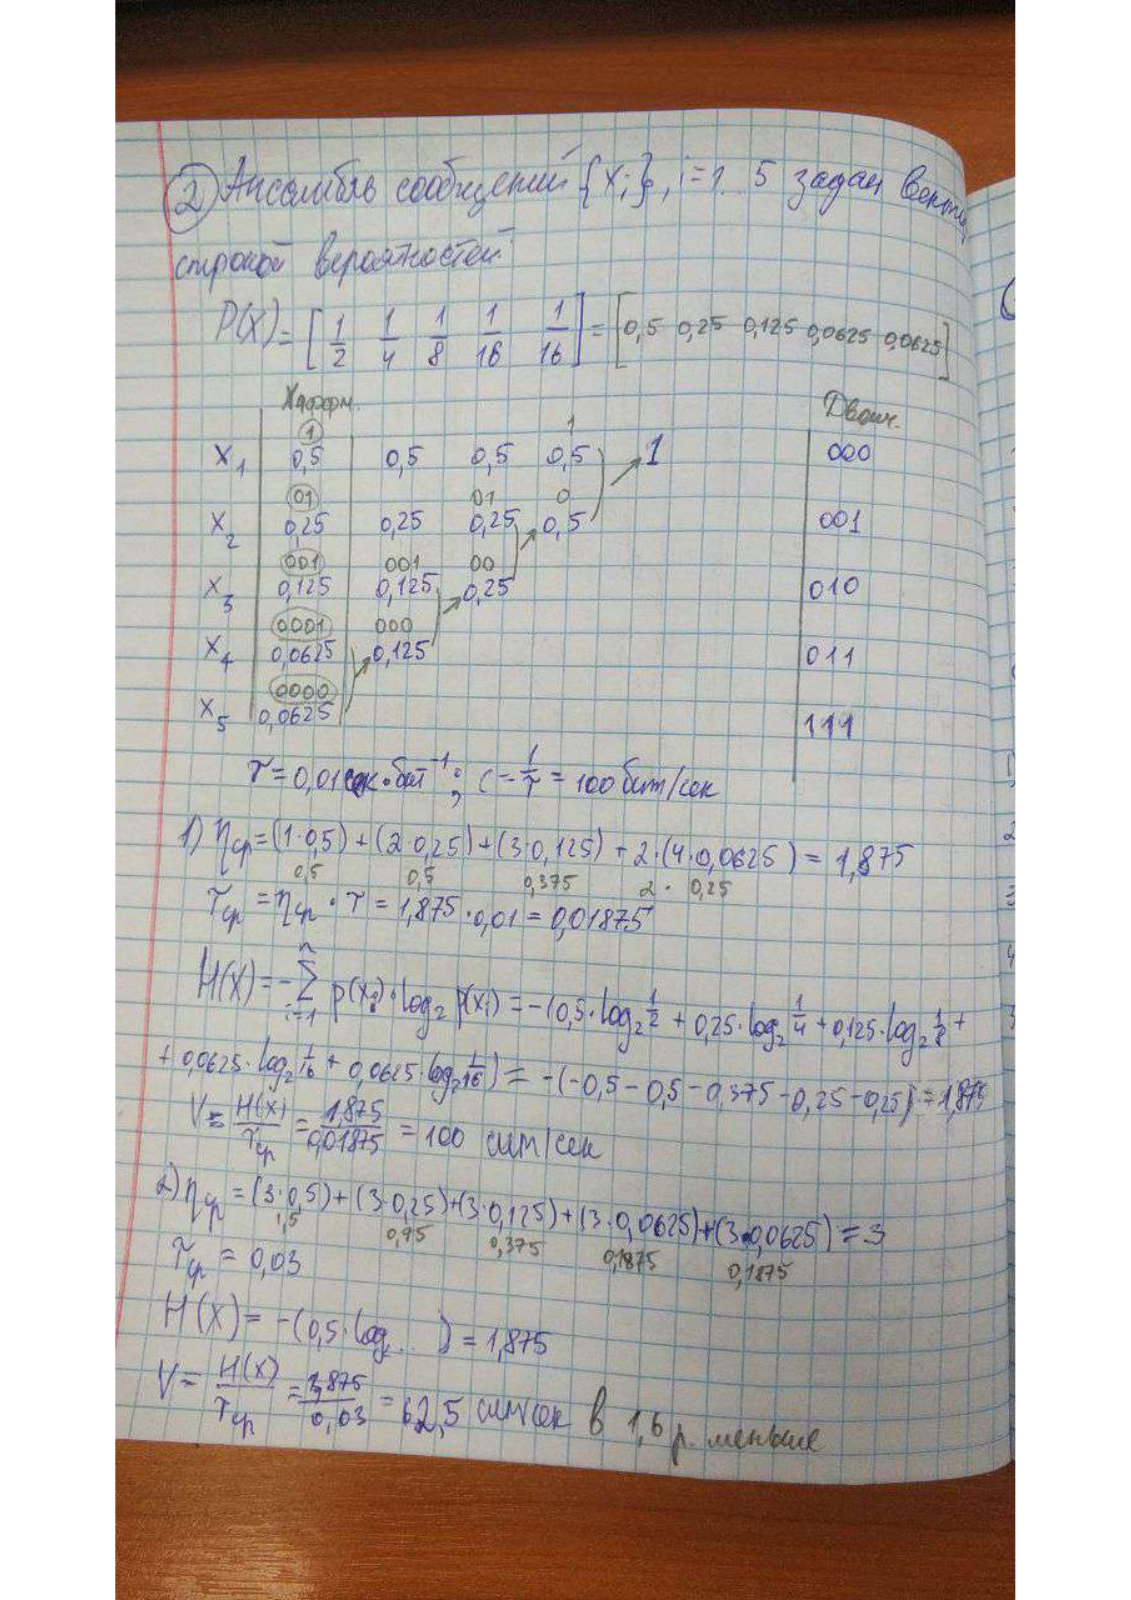 2) Ансамбль сообщений {Xi}, i=1...5 задан вектор
строкой вероятностей:
P(X) = [1/2 1/4 1/8 1/16 1/16] = [0,5 0,25 0,125 0,0625 0,0625]
Хаффм. Двоич.
1 1
X1 0,5 0,5 0,5 0,5 1 000
01 01 0
X2 0,25 0,25 0,25 0,5 001
001 001 00
X3 0,125 0,125 0,25 010
0001 000
X4 0,0625 0,125 011
0000
X5 0,0625 111
τ = 0,01 сек·бит⁻¹; C = 1/τ = 100 бит/сек
1) ηср = (1·0,5) + (2·0,25) + (3·0,125) + 2·(4·0,0625) = 1,875
0,5 0,5 0,375 2· 0,25
τср = ηср · τ = 1,875·0,01 = 0,01875
H(X) = -∑ⁿᵢ₌₁ p(xi)·log₂ p(xi) = -(0,5·log₂ 1/2 + 0,25·log₂ 1/4 + 0,125·log₂ 1/8 +
+ 0,0625·log₂ 1/16 + 0,0625·log₂ 1/16) = -(-0,5-0,5-0,375-0,25-0,25) = 1,875
V = H(X)/τср = 1,875/0,01875 = 100 сим/сек
2) ηср = (3·0,5) + (3·0,25)+(3·0,125)+(3·0,0625)+(3·0,0625) = 3
1,5 0,75 0,375 0,1875 0,1875
τср = 0,03
H(X) = -(0,5·log₂...) = 1,875
V = H(X)/τср = 1,875/0,03 = 62,5 сим/сек в 1,6 р. меньше